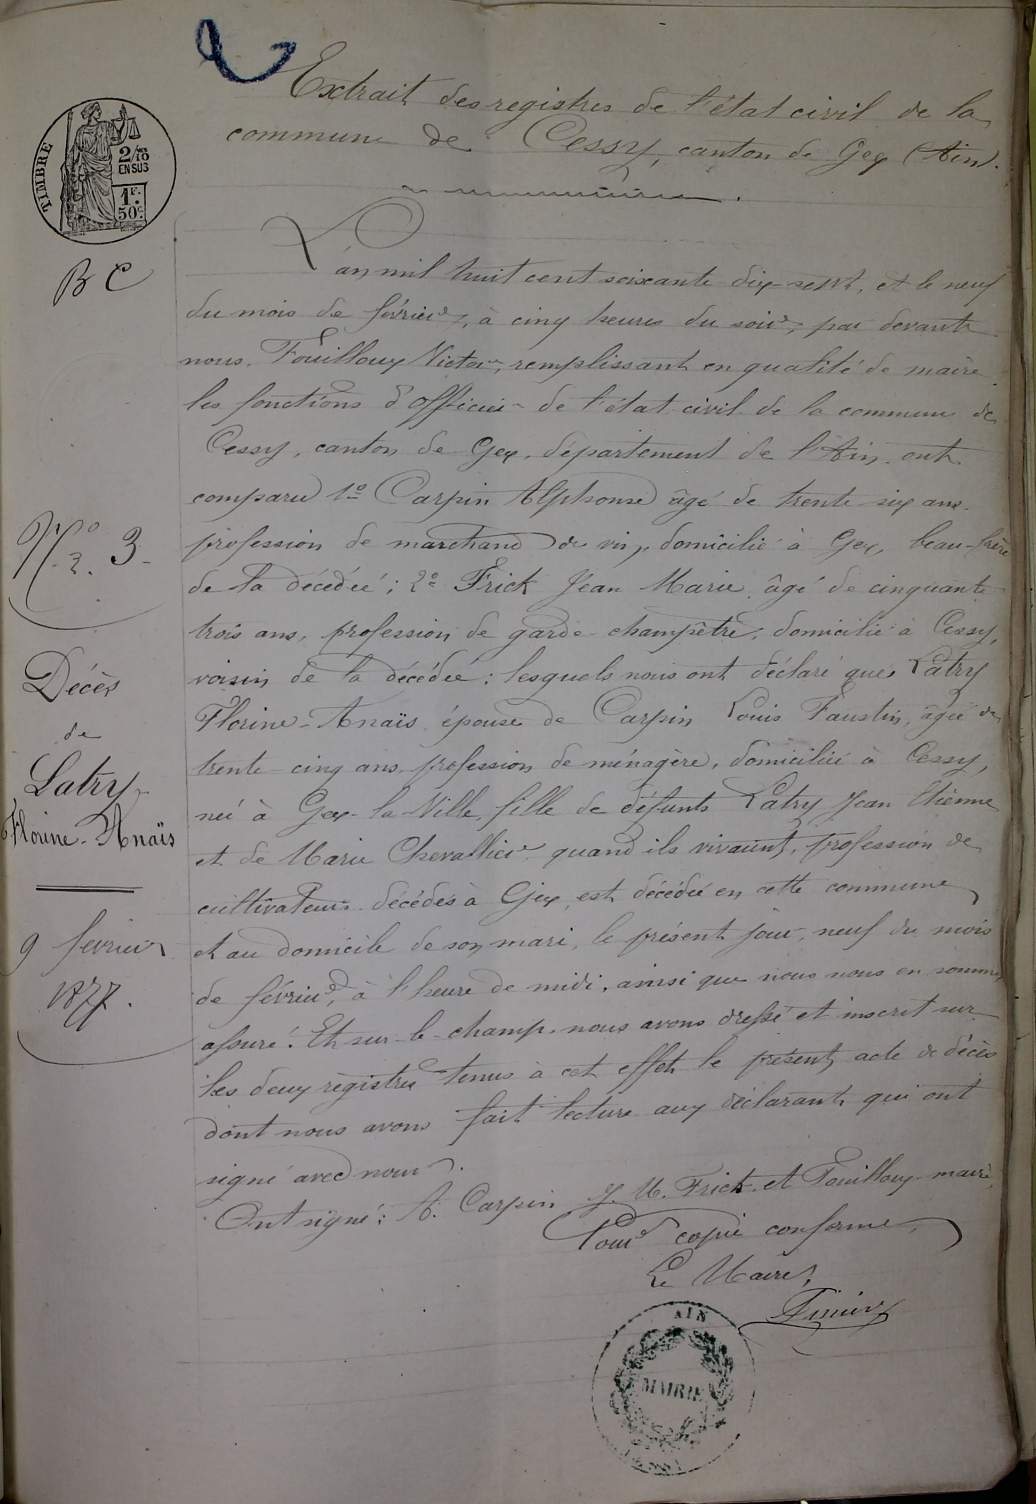 Extrait des registres de l'état civil de la
commune de Cessy, canton de Gex (Ain).
TIMBRE
2/10
EN SUS
1F.
50c.
B C
L'an mil huit cent soixante dix-sept, et le neuf
du mois de février, à cinq heures du soir, par devant
nous, Fouilloux Victor, remplissant en qualité de maire
les fonctions d'officier de l'état civil de la commune de
Cessy, canton de Gex, département de l'Ain, ont
comparu 1o Carpin Alphonse âgé de trente six ans
profession de marchand de vin, domicilié à Gex, beau-frère
de la décédée; 2o Frick Jean Marie, âgé de cinquante
trois ans, profession de garde champêtre, domicilié à Cessy,
voisin de la décédée; lesquels nous ont déclaré que Latry
Florine-Anaïs épouse de Carpin Louis Faustin, âgée de
trente-cinq ans, profession de ménagère, domiciliée à Cessy,
née à Gex-la-Ville, fille de défunts Latry Jean Etienne
et de Marie Chevallier, quand ils vivaient, profession de
cultivateurs décédés à Gex, est décédée en cette commune
et au domicile de son mari, le présent jour, neuf du mois
de février, à l'heure de midi, ainsi que nous nous en sommes
assuré. Et sur-le-champ, nous avons dressé et inscrit sur
les deux registres tenus à cet effet le présent acte de décès
dont nous avons fait lecture aux déclarants qui ont
signé avec nous.
Ont signé: A. Carpin J. M. Frick et Fouilloux maire
Pour copie conforme,
Le Maire,
No 3
Décès
de
Latry
Florine-Anaïs
9 février
1877.
AIN
MAIRIE